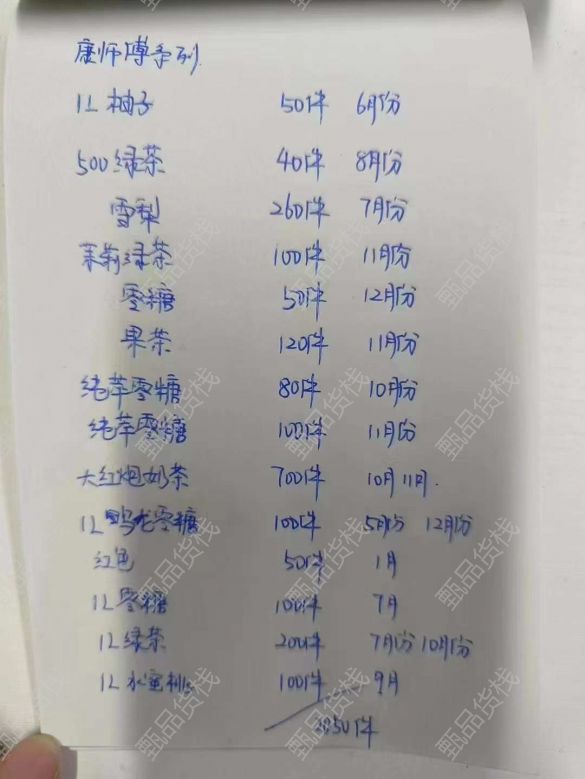 康师傅系列
1L 柚子 50件 6月份
500 绿茶 40件 8月份
雪梨 260件 7月份
茉莉绿茶 100件 11月份
零糖 50件 12月份
果茶 120件 11月份
纯萃零糖 80件 10月份
纯萃零糖 100件 11月份
大红袍奶茶 700件 10月 11月.
1L 鸭龙零糖 100件 5月份 12月份
红色 50件 1月
1L 零糖 100件 7月
1L 绿茶 200件 7月份 10月份
1L 水蜜桃 100件 9月
甄品货栈